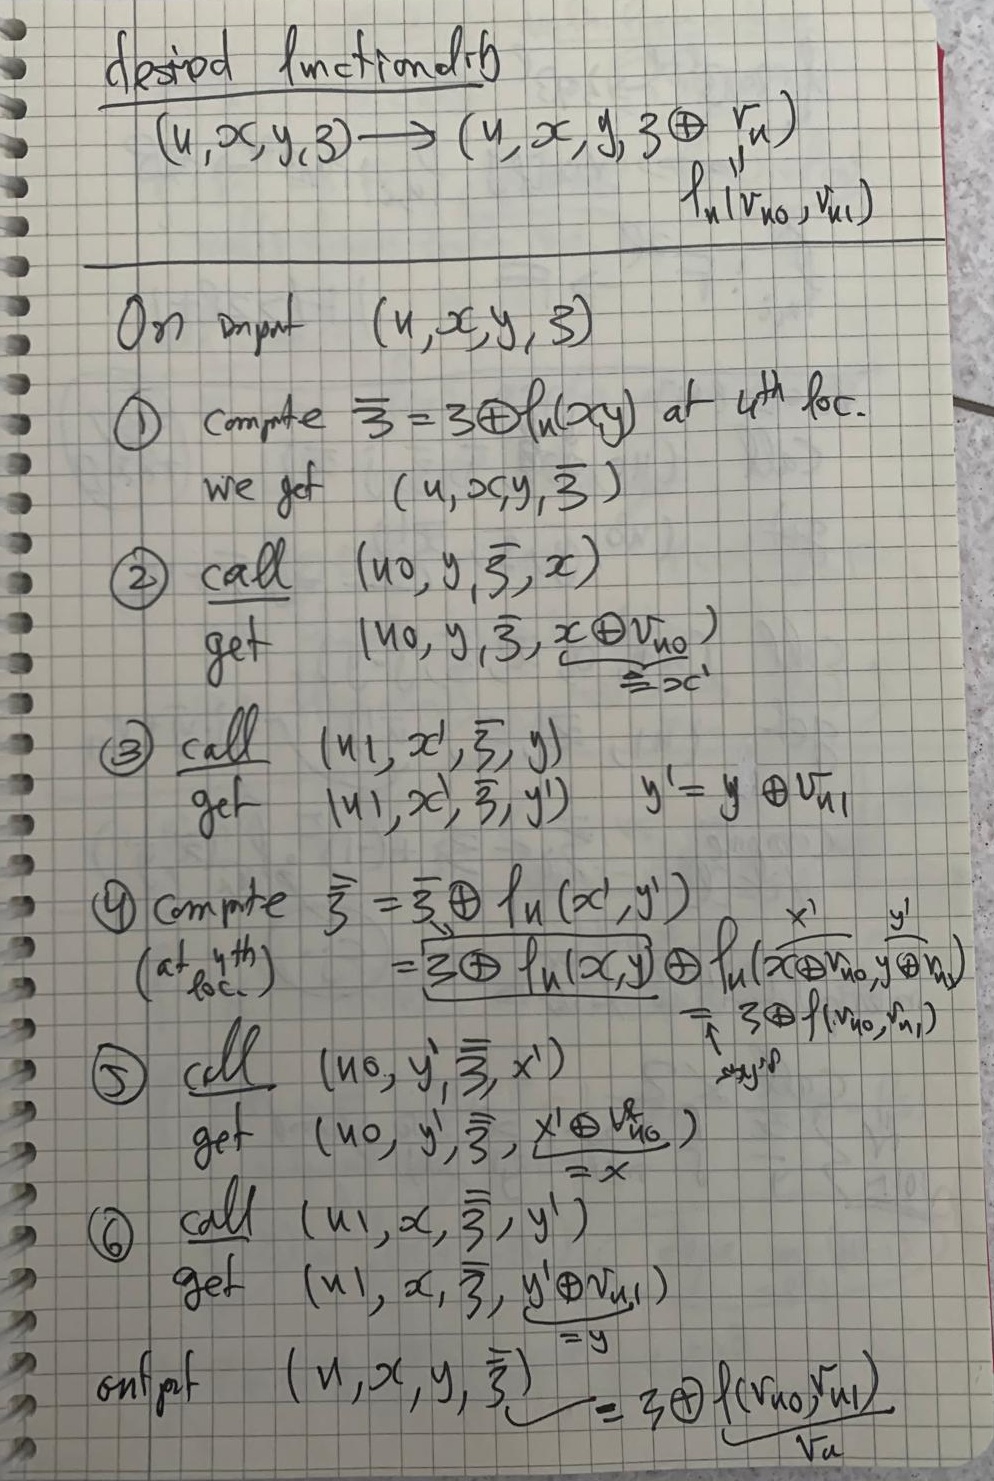 desired functionality
(u, x, y, z) → (u, x, y, z ⊕ v_u)
f_u(v_{u0}, v_{u1})
On input (u, x, y, z)
① compute z̄ = z ⊕ f_u(x,y) at 4th loc.
we get (u, x, y, z̄)
② call (u0, y, z̄, x)
get (u0, y, z̄, x ⊕ v_{u0})
= x'
③ call (u1, x', z̄, y)
get (u1, x', z̄, y') y' = y ⊕ v_{u1}
④ compute z̿ = z̄ ⊕ f_u(x', y')
x' y'
(at 4th loc.) = z ⊕ f_u(x,y) ⊕ f_u(x ⊕ v_{u0}, y ⊕ v_{u1})
= z ⊕ f(v_{u0}, v_{u1})
⑤ call (u0, y', z̿, x')
get (u0, y', z̿, x' ⊕ v_{u0})
= x
⑥ call (u1, x, z̿, y')
get (u1, x, z̿, y' ⊕ v_{u1})
= y
output (u, x, y, z̿) = z ⊕ f(v_{u0}, v_{u1})
v_u